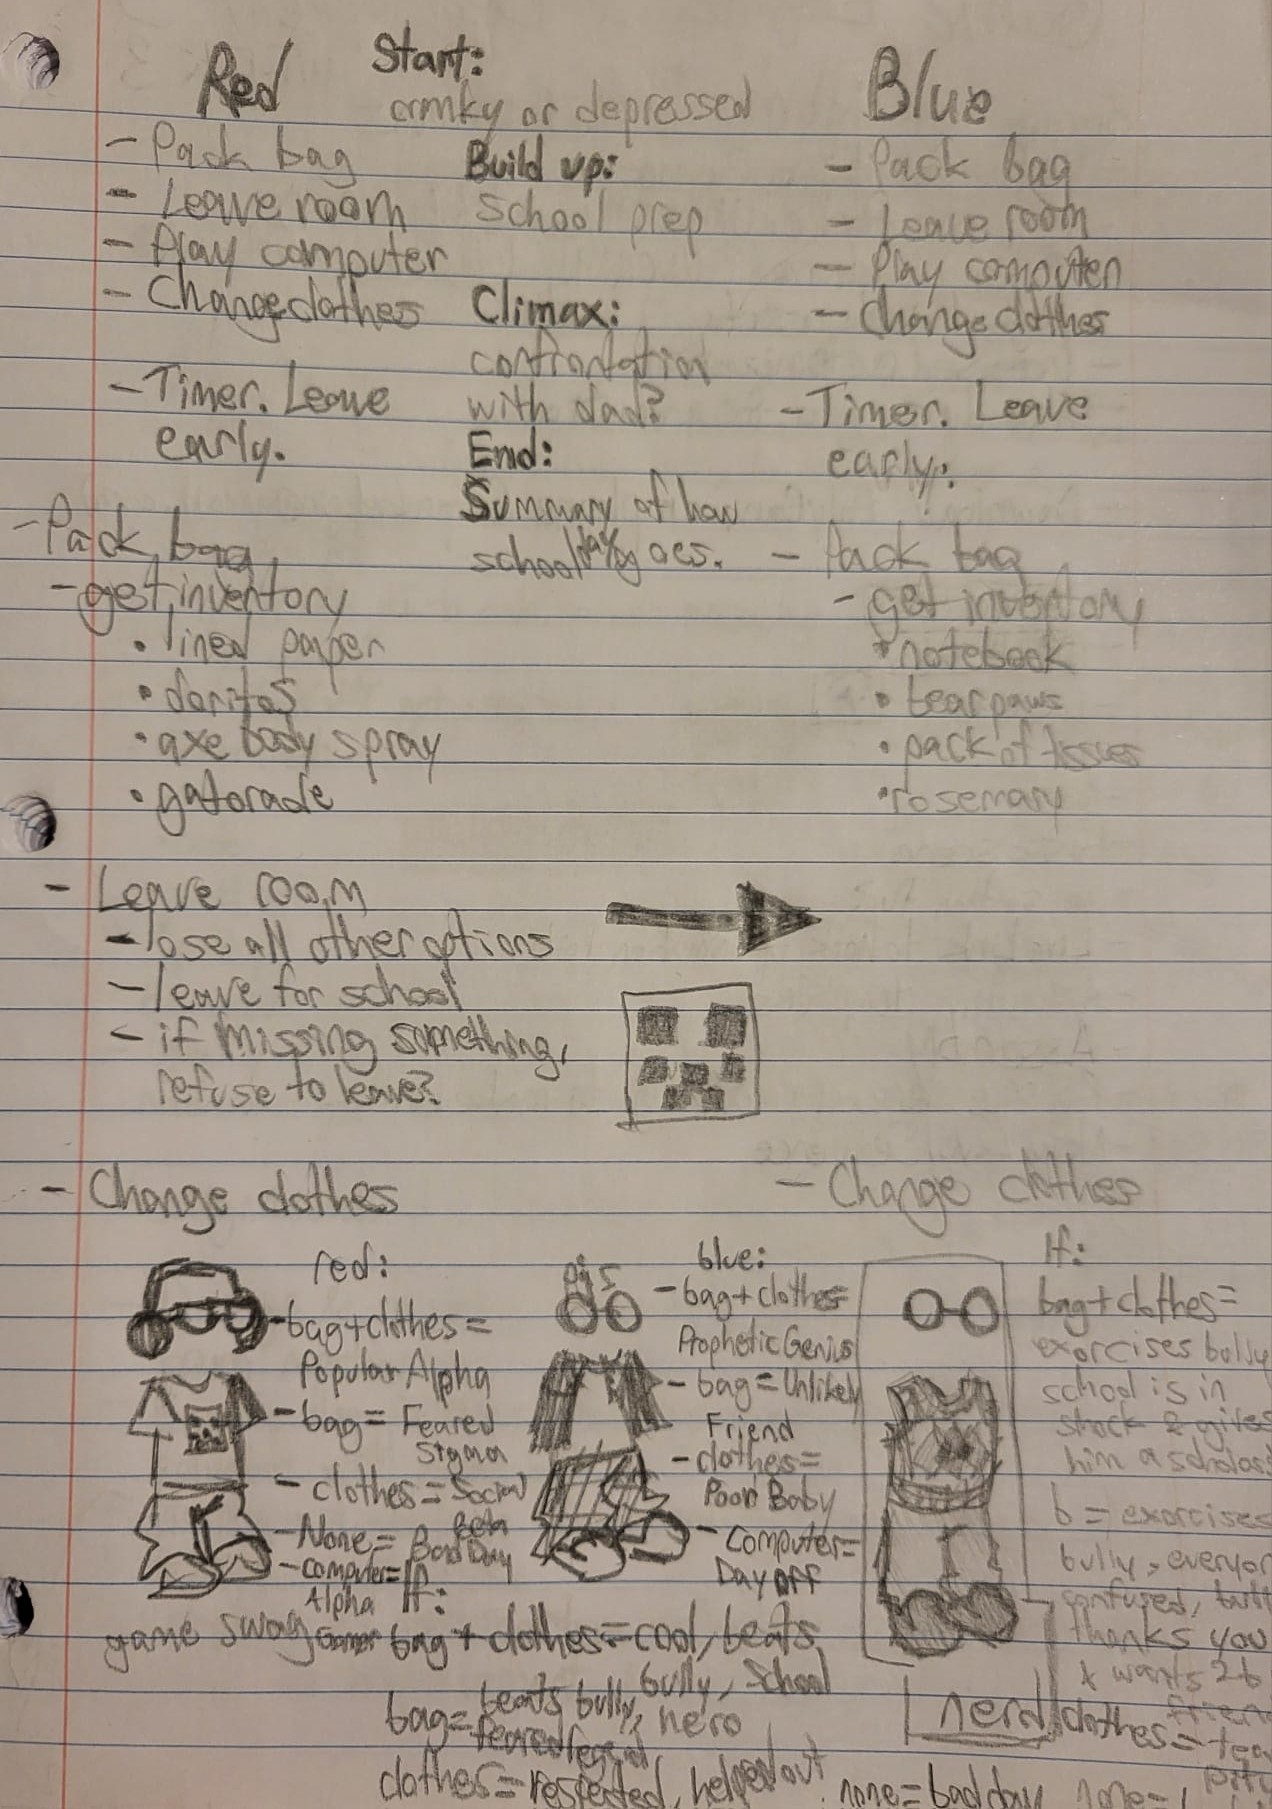 Red
- Pack bag
- Leave room
- Play computer
- Change clothes
- Timer. Leave
early.
Start:
or depressed
Build up:
School prep
Climax:
confrontation
with dad?
End:
Summary of how
school day goes.
Blue
- Pack bag
- Leave room
- Play computer
- Change clothes
- Timer. Leave
early.
- Pack bag
- get inventory
• lined paper
• doritos
• axe body spray
• gatorade
- Pack bag
- get inventory
• notebook
• bear paws
• pack of tissues
• rosemary
- Leave room
- lose all other options
- leave for school
- if missing something,
refuse to leave?
- Change clothes
red:
- bag+clothes =
Popular Alpha
- bag = Feared
Sigma
- clothes = Social
Beta
- None = Bad Day
- computer =
Alpha
Gamer
game swag
blue:
- bag+clothes =
Prophetic Genius
- bag = Unlikely
Friend
- clothes =
Poor Baby
- Computer =
Day off
- Change clothes
If:
bag+clothes =
exorcises bully
school is in
shock & gives
him a
b = exorcises
bully,
confused,
thanks you
& wants 2 b
nerd
clothes =
If:
bag + clothes = cool, beats
bully, school
hero
bag = beats bully,
feared legend
clothes = respected, helped out
none = bad day
none =